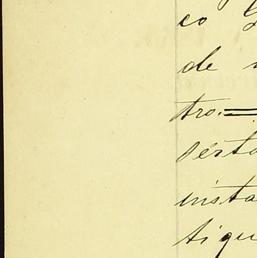 co
de
tro.=
serta
insta
tigu